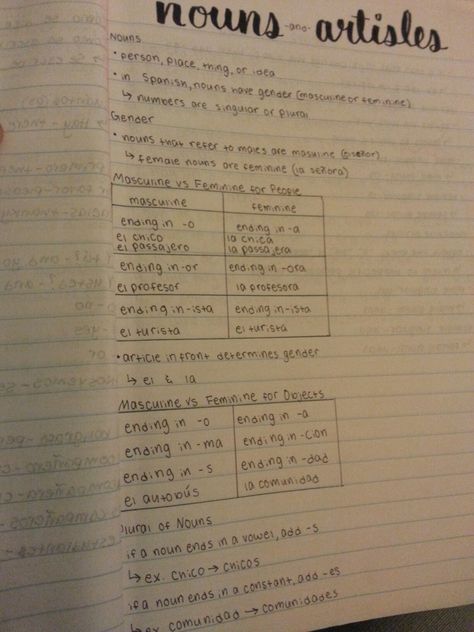 nouns and artisles
Nouns
• person, place, thing, or idea
• in Spanish, nouns have gender (masculine or feminine)
↳ numbers are singular or plural
Gender
• nouns that refer to males are masuline (el señor)
↳ female nouns are feminine (la señora)
Masculine vs Feminine for People
masculine feminine
ending in -o ending in -a
el chico la chica
el passajero la passajera
ending in -or ending in -ora
el profesor la profesora
ending in -ista ending in -ista
el turista el turista
• article in front determines gender
↳ el & la
Masculine vs Feminine for Objects
ending in -o ending in -a
ending in -ma ending in -cion
ending in -s ending in -dad
el autobús la comunidad
Plural of Nouns
if a noun ends in a vowel, add -s
↳ ex. chico → chicos
if a noun ends in a constant, add -es
↳ ex. comunidad → comunidades